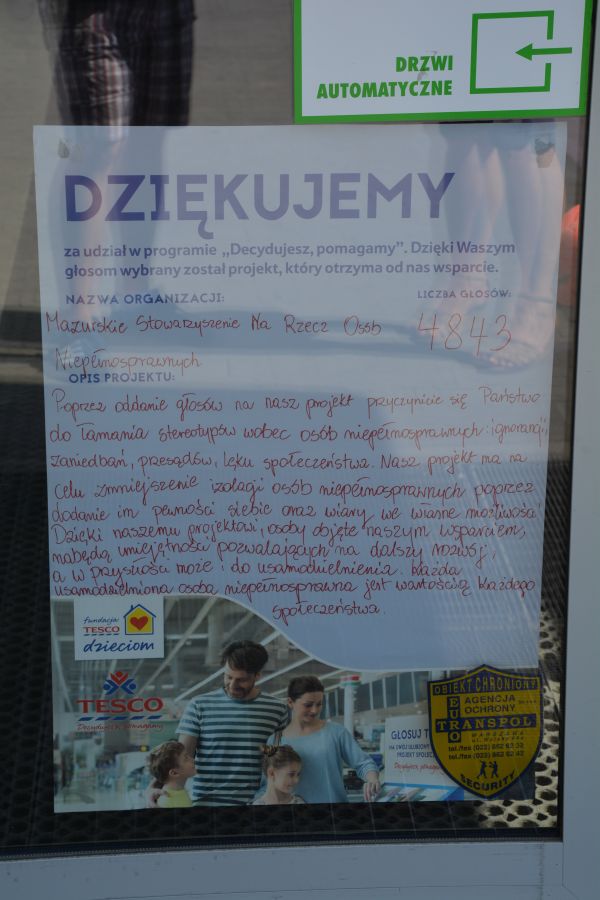 DRZWI
AUTOMATYCZNE
DZIĘKUJEMY
za udział w programie „Decydujesz, pomagamy”. Dzięki Waszym
głosom wybrany został projekt, który otrzyma od nas wsparcie.
NAZWA ORGANIZACJI:
LICZBA GŁOSÓW:
Mazurskie Stowarzyszenie Na Rzecz Osób
4843
Niepełnosprawnych
OPIS PROJEKTU:
Poprzez oddanie głosów na nasz projekt przyczynicie się Państwo
do łamania stereotypów wobec osób niepełnosprawnych: ignorancji,
zaniedbań, przesądów, lęku społeczeństwa. Nasz projekt ma na
celu zmniejszenie izolacji osób niepełnosprawnych poprzez
dodanie im pewności siebie oraz wiary we własne możliwości
Dzięki naszemu projektowi, osoby objęte naszym wsparciem,
nabędą umiejętności pozwalających na dalszy rozwój,
a w przyszłości może i do usamodzielnienia. Każda
usamodzielniona osoba niepełnosprawna jest wartością każdego
społeczeństwa.
fundacja
TESCO
dzieciom
TESCO
Decydujesz, pomagamy
GŁOSUJ
NA SWÓJ ULUBIONY
PROJEKT
Decydujesz, pomagamy
OBIEKT CHRONIONY
EURO
AGENCJA
OCHRONY
TRANSPOL
WARSZAWA
SECURITY